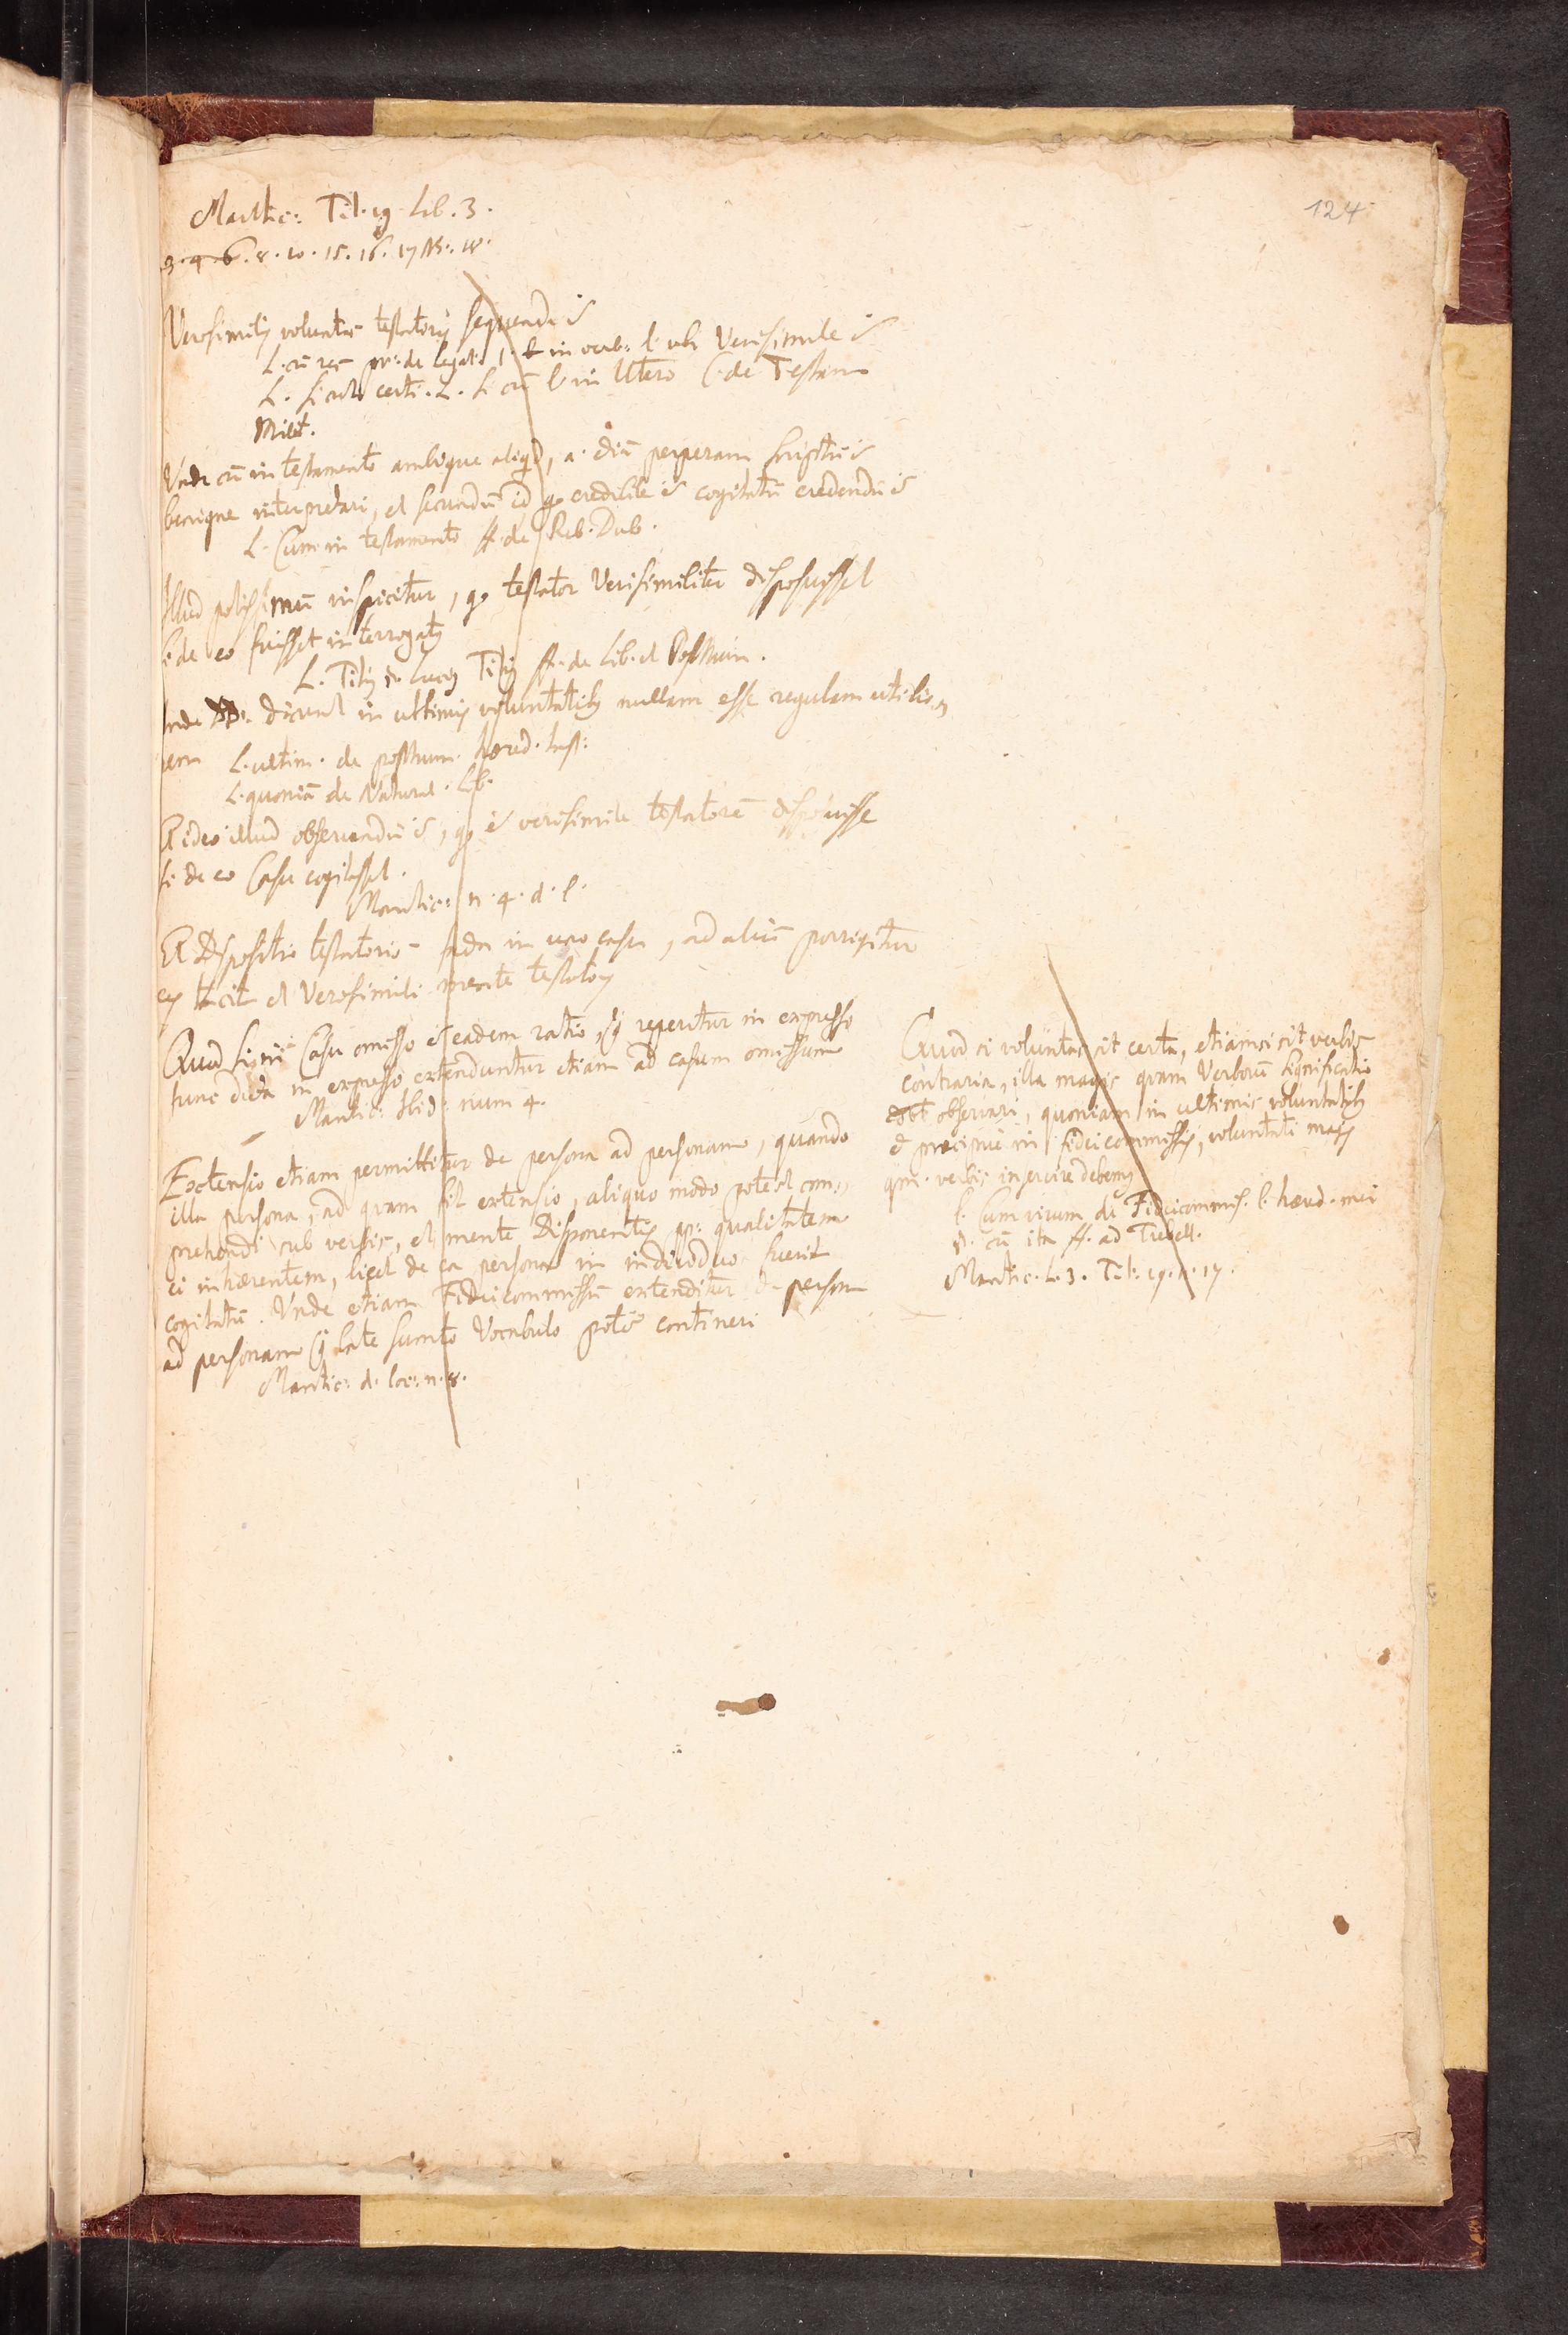 124
Mantic: Tit. 19. Lib. 3.
3. 4. 6. 8. 10. 15. 16. 17 NB. 18.
Verosimilis voluntas testatoris sequenda ē
L. cū pr: de legat. 1. & in verb: l. ubi Verisimile ē
L. certi. L. si cū l. in Utero C. de Testam
Milit.
Unde cū in testamento ambigue aliqd, a. etiā perperam scriptū ē
benigne interpretari, et secundū id qo credibile ē cogitatū credendū ē
L. Cum in testamento ff. de Reb. Dub.
Illud potissimū inspicitur, qo testator Verisimiliter disposuisset
si de eo fuisset interrogatus
L. Titius §. Lucius Titius ff. de Lib. et Posthum.
Inde DD: dicunt in ultimis voluntatibus nullam esse regulam utilio„
rem L. ultim. de posthum. hæred. Inst:
L. quoniā de Natural. Lib.
Et ideo illud observandū ē, qo ē verisimile testatorē disposuisse
si de eo Casu cogitasset.
Mantic: n. 4. d. l.
Et Dispositio testatoris facta in uno casu, ad aliū porrigitur
ex tacit et Verosimili mente testatoris
Quod si in Casu omisso ē eadem ratio, q reperitur in expresso
tunc dicta in expresso extenduntur etiam ad casum omissum
Mantic: Ibid: num 4.
Extensio etiam permittitur de persona ad personam, quando
illa persona, ad quam fit extensio, aliquo modo potest com„
prehendi sub verbis, et mente Disponentis pr: qualitatem
ei inhærentem, licet de ea persona in individuo fuerit
cogitatū. Unde etiam Fideicommissū extenditur de persona
ad personam q late sumto Vocabulo potē contineri
Mantic: d. loc: n. 8.
Quod si voluntas sit certa, etiamsi sit verbis
contraria, illa magis quam Verborū significatio
debt observari, quoniam in ultimis voluntatibus
et præcipue in fideicommissis, voluntati magis
qm. verbis inservire debemus
l. Cum virum de Fideicommis. l. hæred. mei
§. cū ita ff. ad Trebell.
Mantic. L. 3. Tit. 19. n. 17.